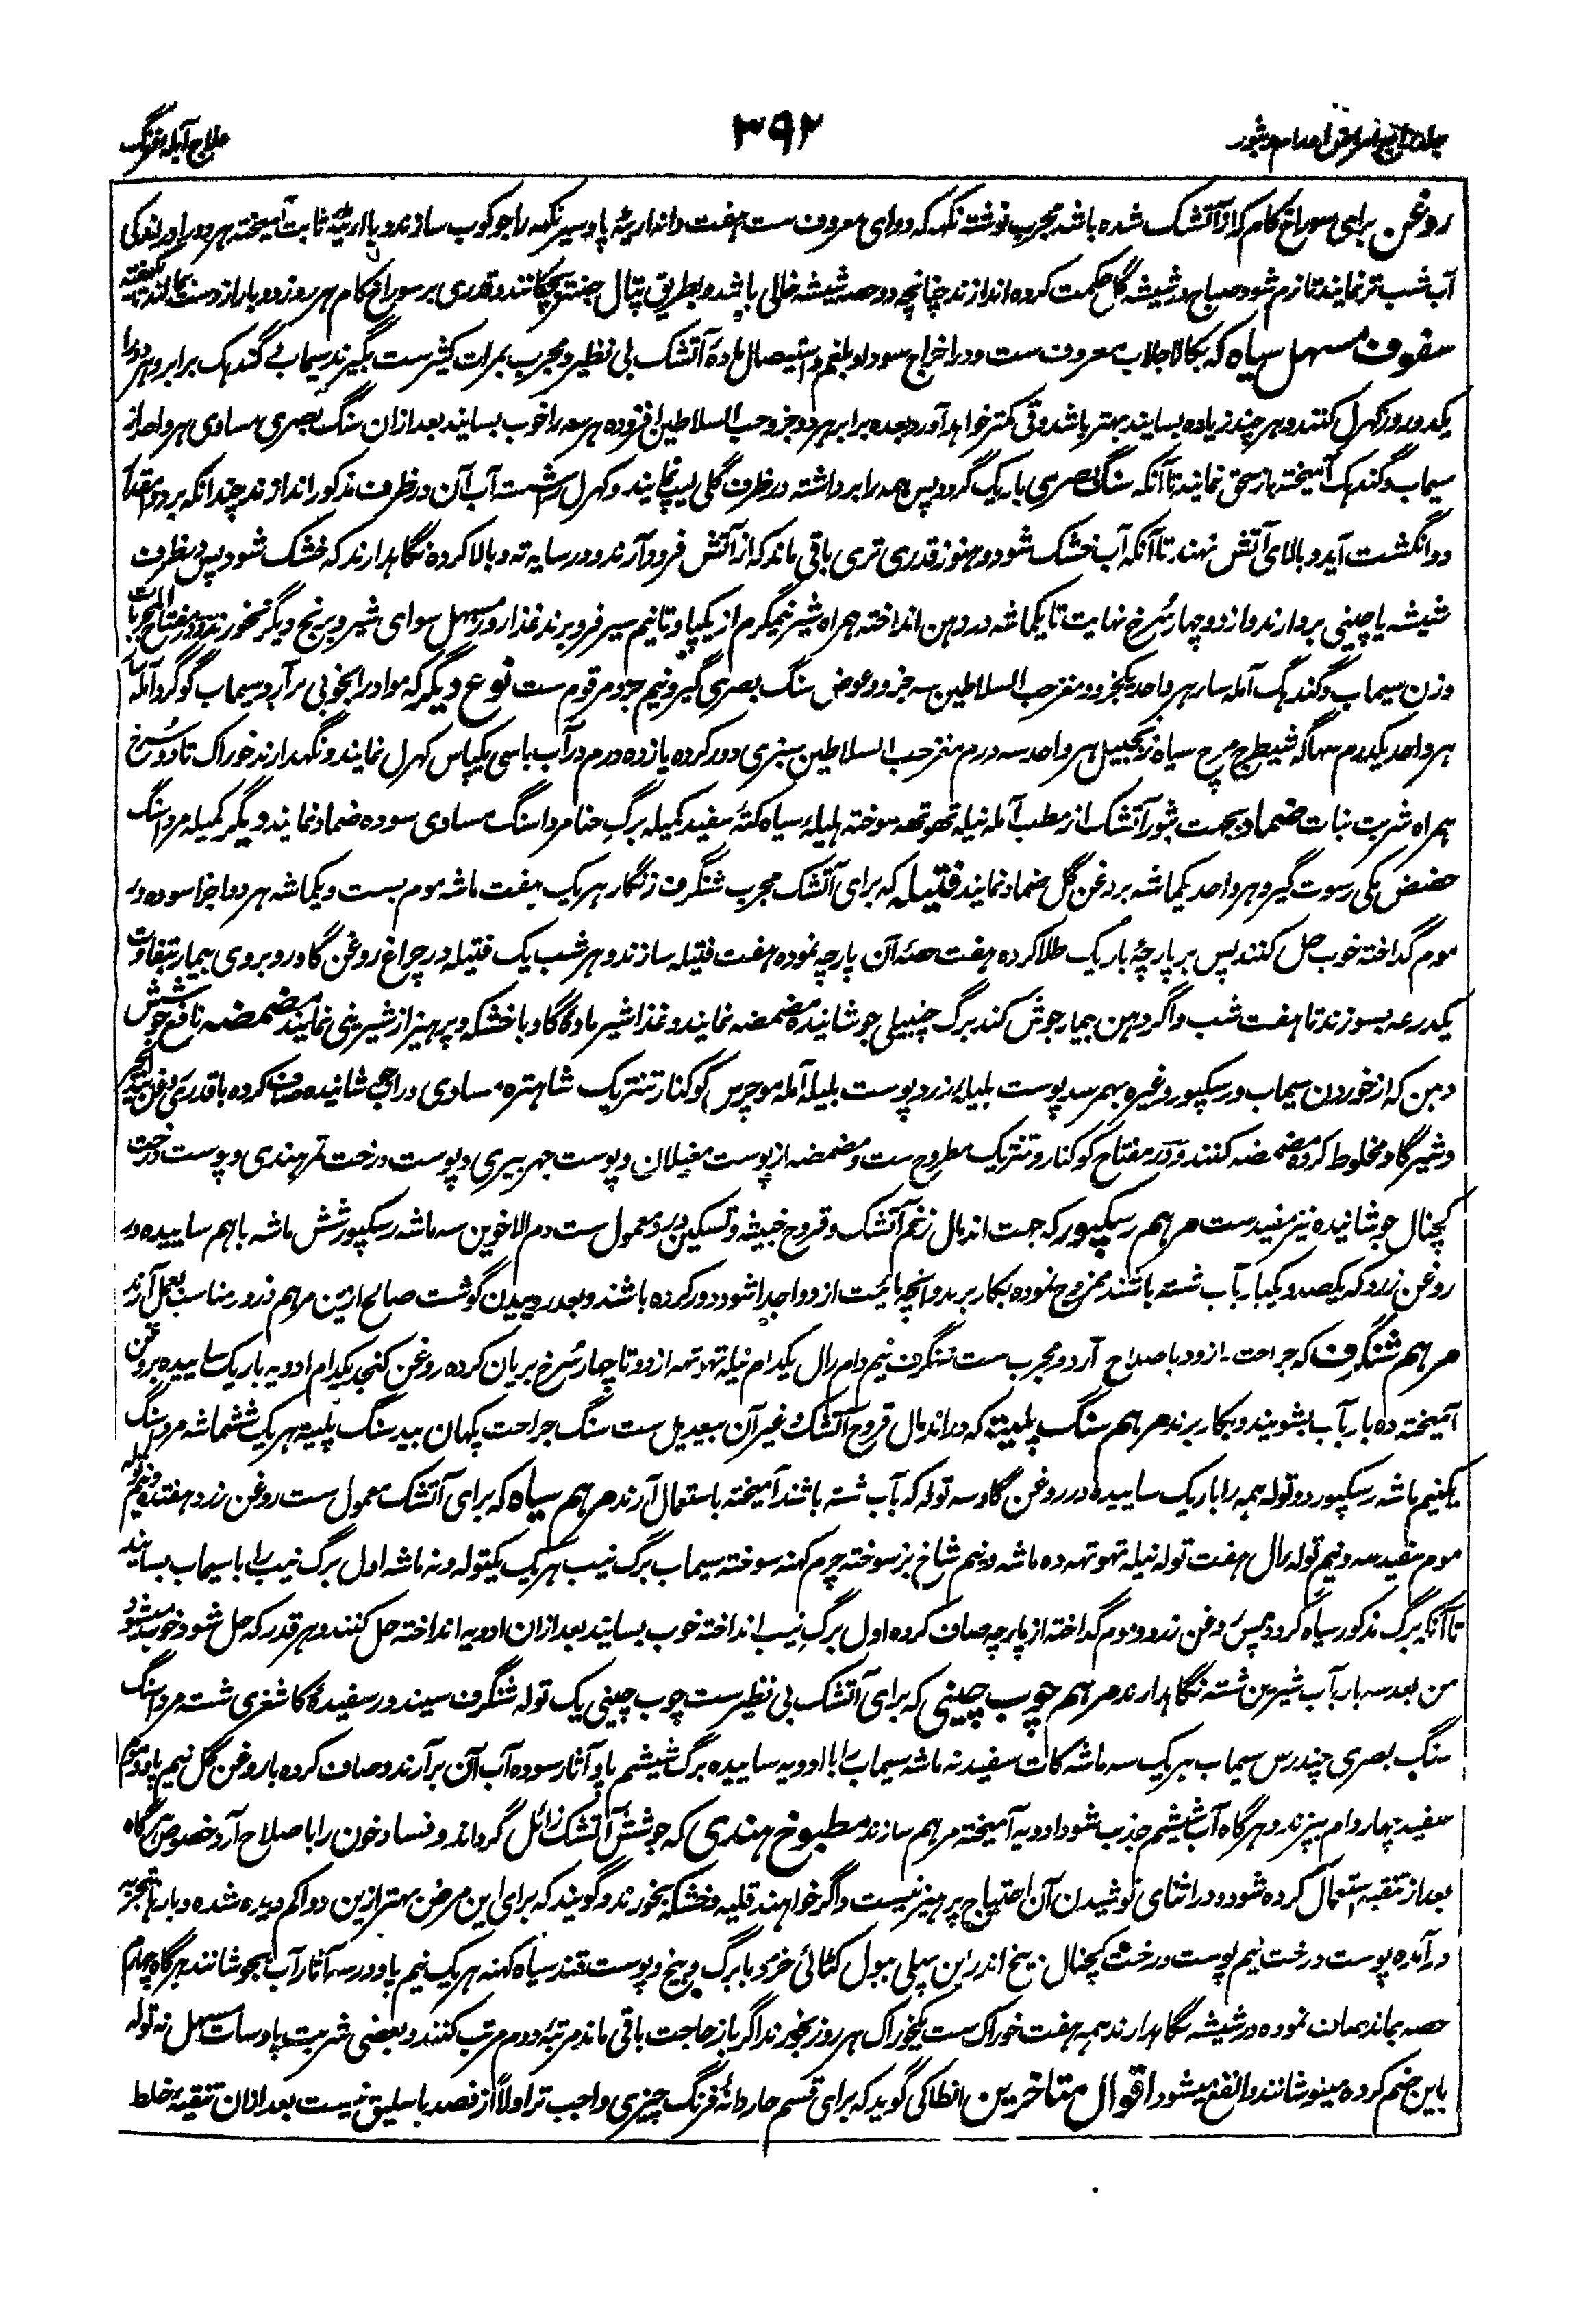 علاج آبله فرنگ
۳۹۲
روغن برای سوراخ کام که از آتشک شده باشد مجرب نوشته نگهه که دوای معروف ست هفت دانه اریٹه پاو سیر نگهه را جوکوب سازند و با اریٹه ثابت آمیخته هر دو را در اندکی
آب شب تر نمایند تا نرم شود صباح در شیشه گل حکمت کرده اندازند چنانچه دو حصه شیشه خالی باشد و بطریق پتال جنتر بچکانند و قدری بر سوراخ کام هر روز دو بار از دست بمالند
سفوف مسهل سیاه که بکالا جلاب معروف ست و در اخراج سودا و بلغم و استیصال ماده آتشک بی نظیر و مجرب بمرات کثیر ست بگیرند سیماب گندهک برابر و هر دو را
یکدو روز کهرل کنند و هر چند زیاده بسایند بهتر باشد و قی کمتر خواهد آورد بعده برابر هر دو جزو حب السلاطین افزوده هر سه را خوب بسایند بعد ازان سنگ بصری مساوی هر واحد از
سیماب و گندهک آمیخته باز سحق نمایند تا آنکه سنگ بصری باریک گردد پس همه را برداشته در ظرف گلی لیپ نمایند و کهرل را شسته آب آن در ظرف مذکور اندازند چندانکه بر دوا بمقدار
دو انگشت آید و بالای آتش نهند تا آنکه آب خشک شود و هنوز قدری تری باقی ماند که از آتش فرود آرند و در سایه ته و بالا کرده نگاهدارند که خشک شود پس در ظرف
شیشه یا چینی بردارند و از دو چهار سُرخ نهایت تا یکماشه در دهن انداخته همراه شیر نیمگرم از یکپاو تا نیم سیر فرو برند غذا روز مسهل سوای شیر و برنج دیگر نخورند و در مفتاح المجربات
وزن سیماب و گندهک آمله سار هر واحد یکجزو و مغز حب السلاطین سه جزو و عوض سنگ بصری گیرو نیم جزو مرقوم ست نوع دیگر که مواد را بخوبی برآرد سیماب گوگرد آمله سار
هر واحد یکدرم سهاگه شیطرج مرچ سیاه زنجبیل هر واحد سه درم مغز حب السلاطین سبزی دور کرده یازده درم در آب باسی یکپاس کهرل نمایند و نگهدارند خوراک تا دو سُرخ
همراه شربت نبات ضماد جهت بثور آتشک از مطب آمله نیله تهوتهه سوخته هلیله سیاه کتهٔ سفید کمیله برگ حنا مرداسنگ مساوی سوده ضماد نمایند دیگر کمیله مرداسنگ
حضض مکی رسوت گیرو هر واحد یکماشه بروغن گل ضماد نمایند فتیله که برای آتشک مجرب شنگرف زنگار هر یک هفت ماشه موم بست و یکماشه هر دو اجزا سوده در
موم گداخته خوب حل کنند پس بر پارچهٔ باریک طلا کرده هفت حصهٔ آن پارچه نموده هفت فتیله سازند و هر شب یک فتیله در چراغ روغن گاو روبروی بیمار بتفاوت
یکدرعه بسوزند تا هفت شب و اگر دهن بیمار جوش کند برگ چنبیلی جوشانیده مضمضه نمایند و غذا شیر ماده گاو با خشکه و پرهیز از شیرینی نمایند مضمضه نافع جوشش
دهن که از خوردن سیماب و رسکپور و غیره بهمرسد پوست هلیله زرد پوست بلیله آمله موچرس کوکنار تنتریک شاهتره مساوی در آب جوشانیده صاف کرده با قدری روغن بید انجیر
و شیر گاو مخلوط کرده مضمضه کنند و در مفتاح کوکنار و تنتریک مطروح ست و مضمضه از پوست مغیلان و پوست جهربیری و پوست درخت تمر هندی و پوست درخت
کچنال جوشانیده نیز مفید ست مرهم رسکپور که جهت اندمال زخم آتشک و قروح خبیثه و تسکین درد معمول ست دم الاخوین سه ماشه رسکپور شش ماشه باهم ساییده در
روغن زرد که یکصد و یکبار بآب شسته باشند ممزوج نموده بکار برند و انچه از دوا جدا شود دور کرده باشند و بعد روییدن گوشت صالح ازین مرهم ذرور مناسب بعمل آرند
مرهم شنگرف که جراحت را زود باصلاح آرد و مجرب ست شنگرف نیم دام رال یکدام نیله تهوتهه از دو تا چهار سُرخ بریان کرده روغن کنجد یکدام ادویه باریک ساییده بروغن
آمیخته ده بار بآب بشویند و بکار برند مرهم سنگ پلیته که در اندمال قروح آتشک و غیر آن بیعدیل ست سنگ جراحت پکهان بید سنگ پلیته هر یک ششماشه مرداسنگ
یکنیم ماشه رسکپور دو توله همه را باریک ساییده در روغن گاو سه توله که بآب شسته باشند آمیخته باستعمال آرند مرهم سیاه که برای آتشک معمول ست روغن زرد هفتده و نیم توله
موم سفید سه و نیم توله رال هفت توله نیله تهوتهه ده ماشه و نیم شاخ بز سوخته چرم کهنه سوخته سیماب برگ نیب هر یک یکتوله و نه ماشه اول برگ نیب را با سیماب بسایند
تا آنکه برگ مذکور سیاه گردد پس روغن زرد و موم گداخته از پارچه صاف کرده اول برگ نیب انداخته خوب بسایند بعد ازان ادویه انداخته حل کنند و هر قدر که حل شود خوب میشود
من بعد سه بار بآب شیرین شسته نگاهدارند مرهم چوب چینی که برای آتشک بی نظیر ست چوب چینی یک توله شنگرف سیندور سفیدهٔ کاشغری شسته مرداسنگ
سنگ بصری چندرس سیماب هر یک سه ماشه کات سفید نه ماشه سیماب را با ادویه ساییده برگ شیشم پاو آثار سوده آب آن برآرند و صاف کرده با روغن گل نیم پاو و موم
سفید چهار دام بپزند و هرگاه آب شیشم جذب شود ادویه آمیخته مرهم سازند مطبوخ هندی که جوشش آتشک زائل گرداند و فساد خون را باصلاح آرد خصوص هرگاه
بعد از تنقیه استعمال کرده شود و در اثنای نوشیدن آن احتیاج پرهیز نیست و اگر خواهند قلیه و خشکه بخورند و گویند که برای این مرض بهتر ازین دوا کم دیده شده و بارها بتجربه
درآمده پوست درخت نیم پوست درخت کچنال بیخ اندراین پهلی ببول کٹائی خرد با برگ و بیخ و پوست قند سیاه کهنه هر یک نیم پاو در سه آثار آب بجوشانند هرگاه چهارم
حصه بماند صاف نموده در شیشه نگاهدارند همه هفت خوراک ست یکخوراک هر روز بخورند اگر باز حاجت باقی ماند مرتبهٔ دوم مرتب کنند و بعضی شربت پاو سات مسهل نه توله
باین ضم کرده مینوشانند و انفع میشود اقوال متاخرین انطاکی گوید که برای قسم حار دانهٔ فرنگ چیزی واجب تر اولاً از فصد باسلیق نیست بعد ازان تنقیهٔ خلط